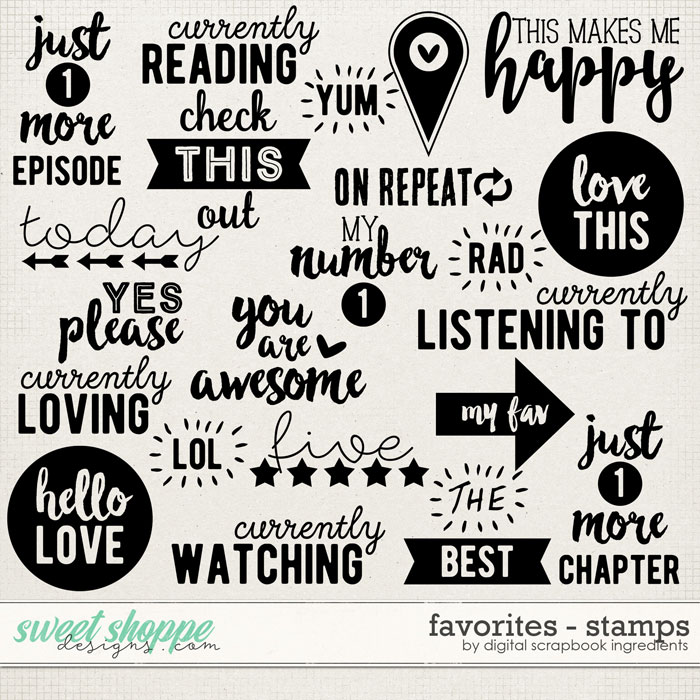 just
1
more
EPISODE
currently
READING
YUM
THIS MAKES ME
happy
check
THIS
out
ON REPEAT
love
THIS
today
MY
number
1
RAD
YES
please
you
are
awesome
currently
LISTENING TO
currently
LOVING
LOL
five
my fav
just
1
more
CHAPTER
hello
LOVE
currently
WATCHING
THE
BEST
sweet shoppe
designs.com
favorites - stamps
by digital scrapbook ingredients